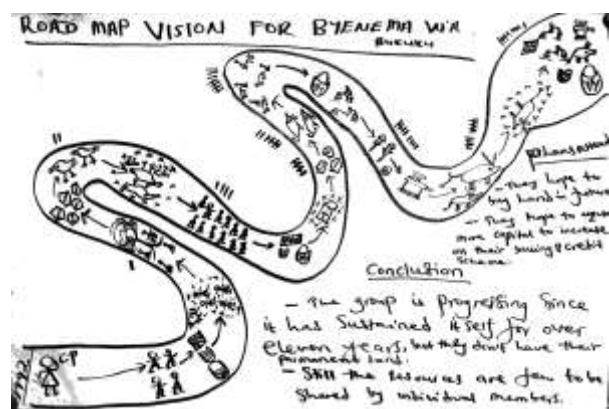 ROAD MAP VISION FOR BYENEMA
CP
- They hope to
buy land in future
- They hope to
more capital to increase
on their saving & credit
scheme.
Conclution
- The group is progressing since
it has sustained itself for over
eleven years, but they don't have their
permanent land.
- Still the resources are few to be
shared by individual members.